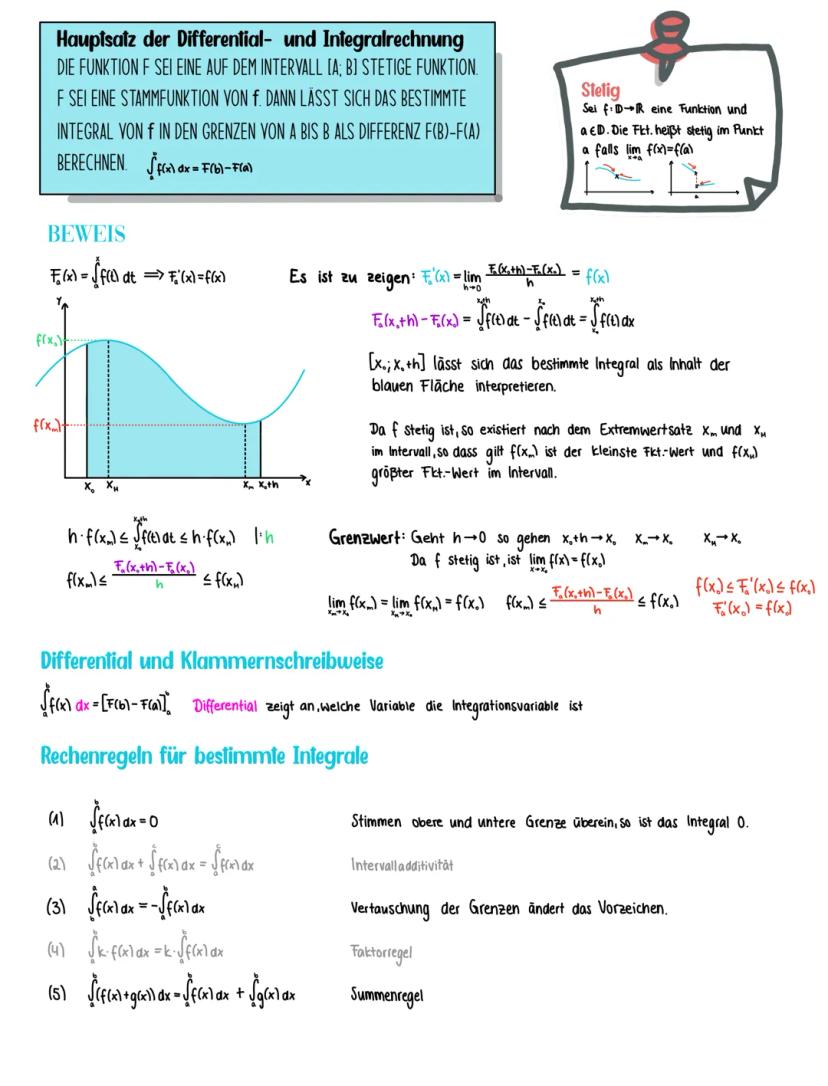 Hauptsatz der Differential- und Integralrechnung
DIE FUNKTION F SEI EINE AUF DEM INTERVALL [A; B] STETIGE FUNKTION.
F SEI EINE STAMMFUNKTION VON f. DANN LÄSST SICH DAS BESTIMMTE
INTEGRAL VON f IN DEN GRENZEN VON A BIS B ALS DIFFERENZ F(B)-F(A)
BERECHNEN. ∫ₐᵇ f(x) dx = F(b)-F(a)
Stetig
Sei f: D→ℝ eine Funktion und
a ∈ D. Die Fkt. heißt stetig im Punkt
a falls lim x→a f(x)=f(a)
a
BEWEIS
Fₐ(x) = ∫ₐˣ f(t) dt ⟹ Fₐ'(x)=f(x)
Es ist zu zeigen: Fₐ'(x) = lim h→0 (Fₐ(x₀+h)-Fₐ(x₀))/h = f(x)
Fₐ(x₀+h)-Fₐ(x₀) = ∫ₐ^(x₀+h) f(t) dt - ∫ₐ^(x₀) f(t) dt = ∫_(x₀)^(x₀+h) f(t) dx
Y
f(x₀)
f(xₘ)
x₀ x_M xₘ x₀+h x
[x₀; x₀+h] lässt sich das bestimmte Integral als Inhalt der
blauen Fläche interpretieren.
Da f stetig ist, so existiert nach dem Extremwertsatz xₘ und x_M
im Intervall, so dass gilt f(xₘ) ist der kleinste Fkt.-Wert und f(x_M)
größter Fkt.-Wert im Intervall.
h·f(xₘ) ≤ ∫_(x₀)^(x₀+h) f(t) dt ≤ h·f(x_M) |:h
f(xₘ) ≤ (Fₐ(x₀+h)-Fₐ(x₀))/h ≤ f(x_M)
Grenzwert: Geht h→0 so gehen x₀+h→x₀ xₘ→x₀ x_M→x₀
Da f stetig ist, ist lim x→x₀ f(x)=f(x₀)
lim xₘ→x₀ f(xₘ) = lim x_M→x₀ f(x_M) = f(x₀) f(xₘ) ≤ (Fₐ(x₀+h)-Fₐ(x₀))/h ≤ f(x₀)
f(x₀) ≤ Fₐ'(x₀) ≤ f(x₀)
Fₐ'(x₀) = f(x₀)
Differential und Klammernschreibweise
∫ₐᵇ f(x) dx = [F(b)-F(a)]ₐᵇ Differential zeigt an, welche Variable die Integrationsvariable ist
Rechenregeln für bestimmte Integrale
(1) ∫ₐᵇ f(x) dx = 0 Stimmen obere und untere Grenze überein, so ist das Integral 0.
(2) ∫ₐᵇ f(x) dx + ∫ f(x) dx = ∫ f(x) dx Intervalladditivität
(3) ∫ f(x) dx = -∫ₐᵇ f(x) dx Vertauschung der Grenzen ändert das Vorzeichen.
(4) ∫ₐᵇ k·f(x) dx = k·∫ₐᵇ f(x) dx Faktorregel
(5) ∫ₐᵇ (f(x)+g(x)) dx = ∫ₐᵇ f(x) dx + ∫ₐᵇ g(x) dx Summenregel